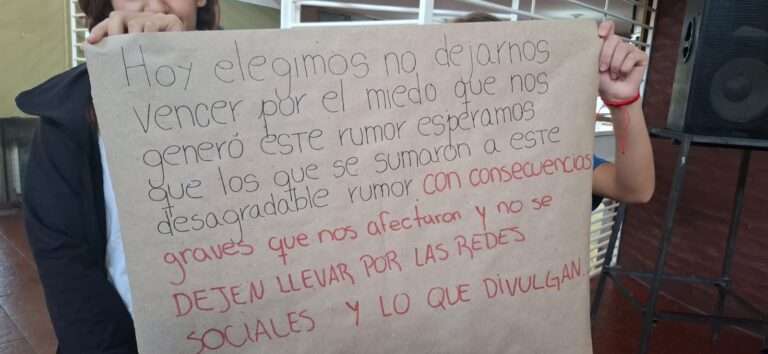 Hoy elegimos no dejarnos
vencer por el miedo que nos
generó este rumor esperamos
que los que se sumaron a este
desagradable rumor con consecuencias
graves que nos afectaron y no se
DEJEN LLEVAR POR LAS REDES
SOCIALES Y LO QUE DIVULGAN.